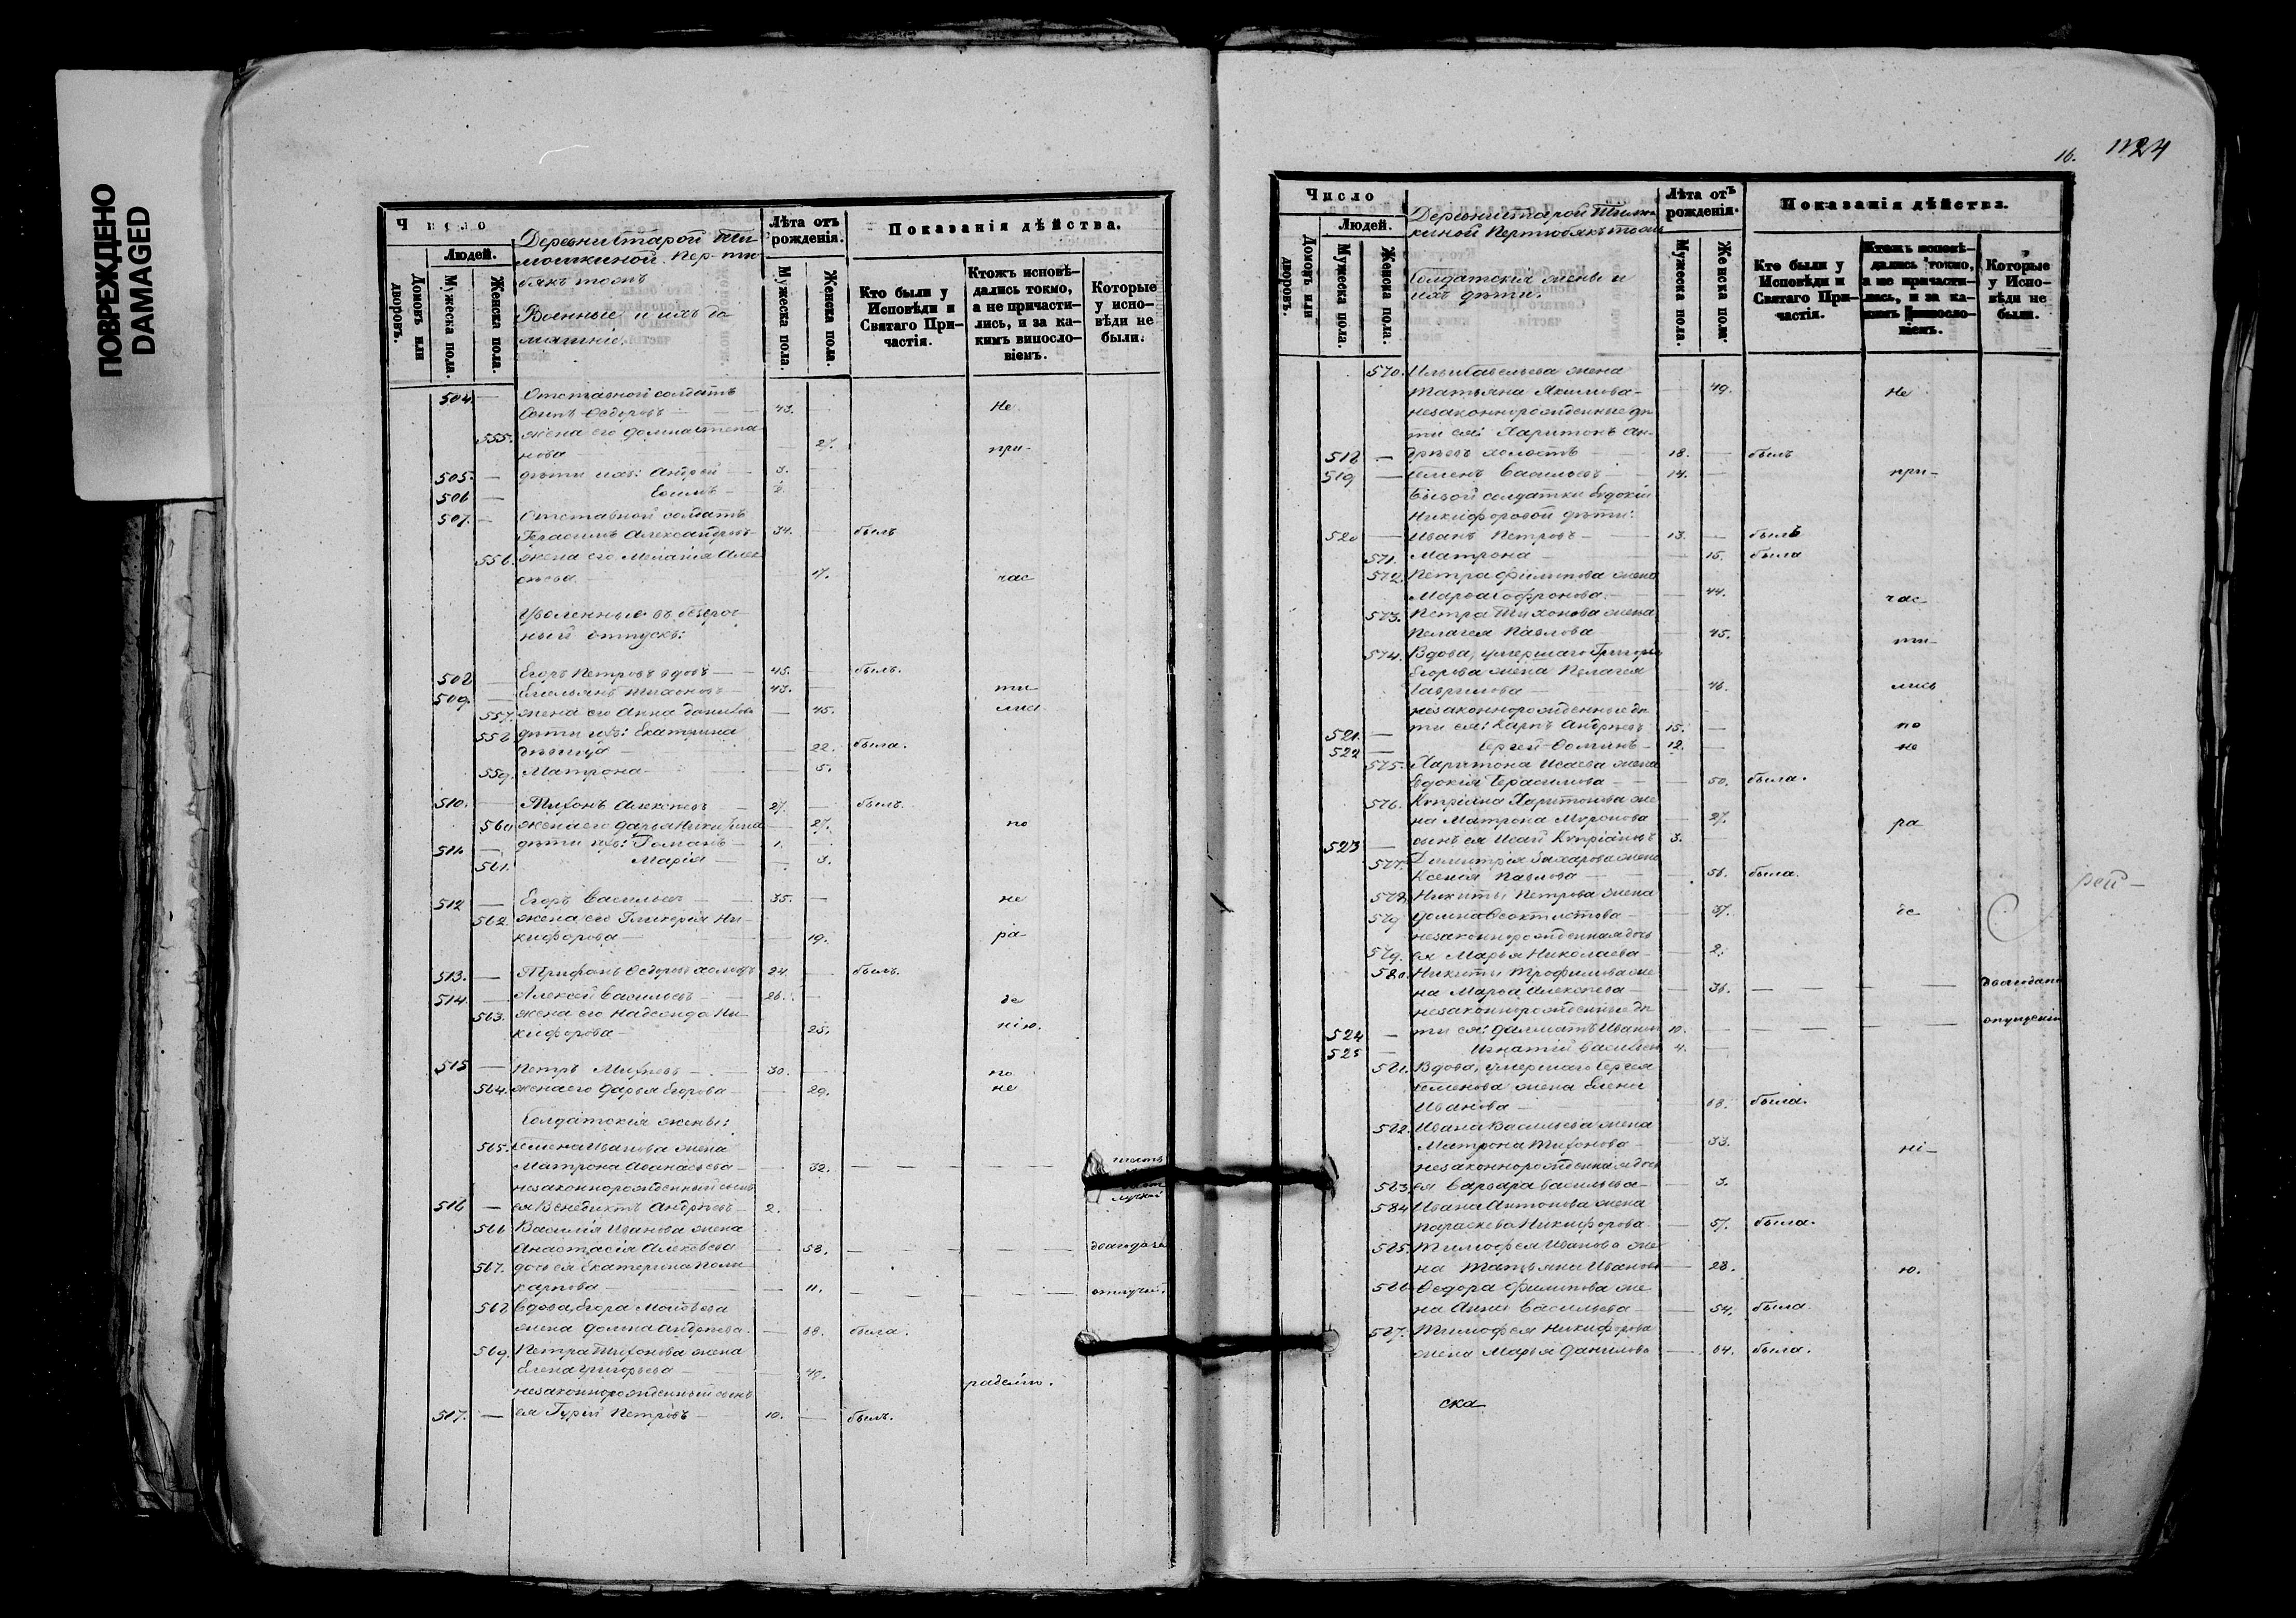 ПОВРЕЖДЕНО
DAMAGED
Число
Людей.
Домовъ или дворовъ.
Мужеска пола.
Женска пола.
Деревни Старой Ти-
мошкиной. Пер-ти
бякъ тожъ
Военные и ихъ до
машніе.
Лѣта отъ рожденія.
Мужеска пола.
Женска пола.
Показанія дѣйства.
Кто были у Исповѣди и Святаго При-частія.
Ктожъ исповѣ-дались токмо, а не причасти-лись, и за ка-кимъ виносло-віемъ.
Которые у испо-вѣди не были.
504. — Отставной солдатъ
Осипъ Ѳедоровъ — 43. — Не
555. жена его Домна Степа-
нова — 27. при-
505. — дѣти ихъ: Андрей — 3.
506 — Ефимъ —
507. — Отставной солдатъ
Герасимъ Александровъ — 34. — былъ
556. жена его Меланія Алек-
сѣева — 17. час
Уволенные въ безсроч-
ный отпускъ:
508 — Егоръ Петровъ вдовъ — 45. — былъ.
509. — Емельянъ Тихоновъ — 43. — ти
557. жена его Анна Данилова — 45. лис
558 дѣти ихъ: Екатерина
дѣвица — 22. была.
559. Матрона — 5.
510. — Тихонъ Алексѣевъ — 27. — былъ.
560 жена его Дарья Никитина — 27. по
511. — дѣти ихъ: Романъ — 1. —
561. Марія — 3.
512 — Егоръ Васильевъ — 35. — не
562. жена его Гликерія Ни-
кифорова — 19. ра-
513. — Трифонъ Ѳедоровъ холостъ 24. — былъ.
514. — Алексѣй Васильевъ — 26. — де
563. жена его Надежда Ни-
кифорова — 25. нію.
515 — Петръ Михѣевъ — 30. — по
564. жена его Дарья Егорова — 29. не
Солдатскія жены:
565. Семена Иванова жена
Матрона Аѳанасьева — 32. — — — —
незаконнорожденный сынъ
516 — ея Венедиктъ Андрѣевъ — 2. —
566 Василія Иванова жена
Анастасія Алексѣева — 58. — — — —
567. дочь ея Екатерина Поли
карпова — 11. — — — — отлучкой.
568 Вдова, Егора Моисѣева
жена Домна Андрѣева. — 68. была.
569. Петра Тихонова жена
Елена Григорьева — 49. радѣнію.
незаконнорожденный сынъ
517. — ея Гурій Петровъ — 10. — былъ.
16. 1124
Число
Людей.
Домовъ или дворовъ.
Мужеска пола.
Женска пола.
Деревни Старой Тимош
киной Пертибякъ тожъ
Солдатскія жены и
ихъ дѣти.
Лѣта отъ рожденія.
Мужеска пола.
Женска пола.
Показанія дѣйства.
Кто были у Исповѣди и Святаго При-частія.
Ктожъ исповѣ-дались токмо, а не причасти-лись, и за ка-кимъ винословіемъ.
Которые у Испо-вѣди не были.
570. Ильи Савельева жена
Татьяна Якимова — 49. Не
незаконнорожденные дѣ
ти ея: Харитонъ Ан-
518 — дрѣевъ холостъ — 18. — былъ
519 — Семенъ Васильевъ — 14. при-
Бывшой солдатки Евдокіи
Никифоровой дѣти:
520 — Иванъ Петровъ — 13. — былъ
571. Матрона — 15. была
572. Петра Филипова жена
Марѳа Софронова. — 44. час
573. Петра Тихонова жена
Пелагея Павлова — 45. ти-
574. Вдова, умершаго Григорія
Егорова жена Пелагея
Гаврилова — 46. лись
незаконнорожденные дѣ
521. — ти ея: Карпъ Андрѣевъ 15. — по
522 — Сергей Ѳоминъ — 12. — не
575. Харитона Исаева жена
Евдокія Герасимова — 50. была.
576. Кипріяна Харитонова же
на Матрона Миронова — 27. ра
523 — сынъ ея Исай Кипріановъ 3. —
577. Димитрія Захарова жена
Ксенія Павлова — 56. была.
578. Никиты Петрова жена
579 Домна Ѳеоктистова — 37. де
незаконнорожденная дочь
579. ея Марья Николаева — 2.
580. Никиты Трофимова же
на Марѳа Алексѣева — 36. — — — —
незаконнорожденные дѣ
524 — ти ея: Далматъ Иванов 10. — — — —
525 — Игнатій Васильев 4. —
581. Вдова, умершаго Сергея
Семенова жена Елена
Иванова — 68. была.
582. Ивана Васильева жена
Матрона Тихонова — 33. ні-
незаконнорожденная дочь
583. ея Варвара Васильева — 3.
584 Ивана Антонова жена
Параскева Никифорова — 57. была.
585. Тимофея Иванова же
на Татьяна Иванова — 28. ю.
586 Ѳедора Филипова же
на Анна Васильева — 54. была.
587. Тимофея Никифорова
жена Марья Данилова — 64. была.
рей-
ска